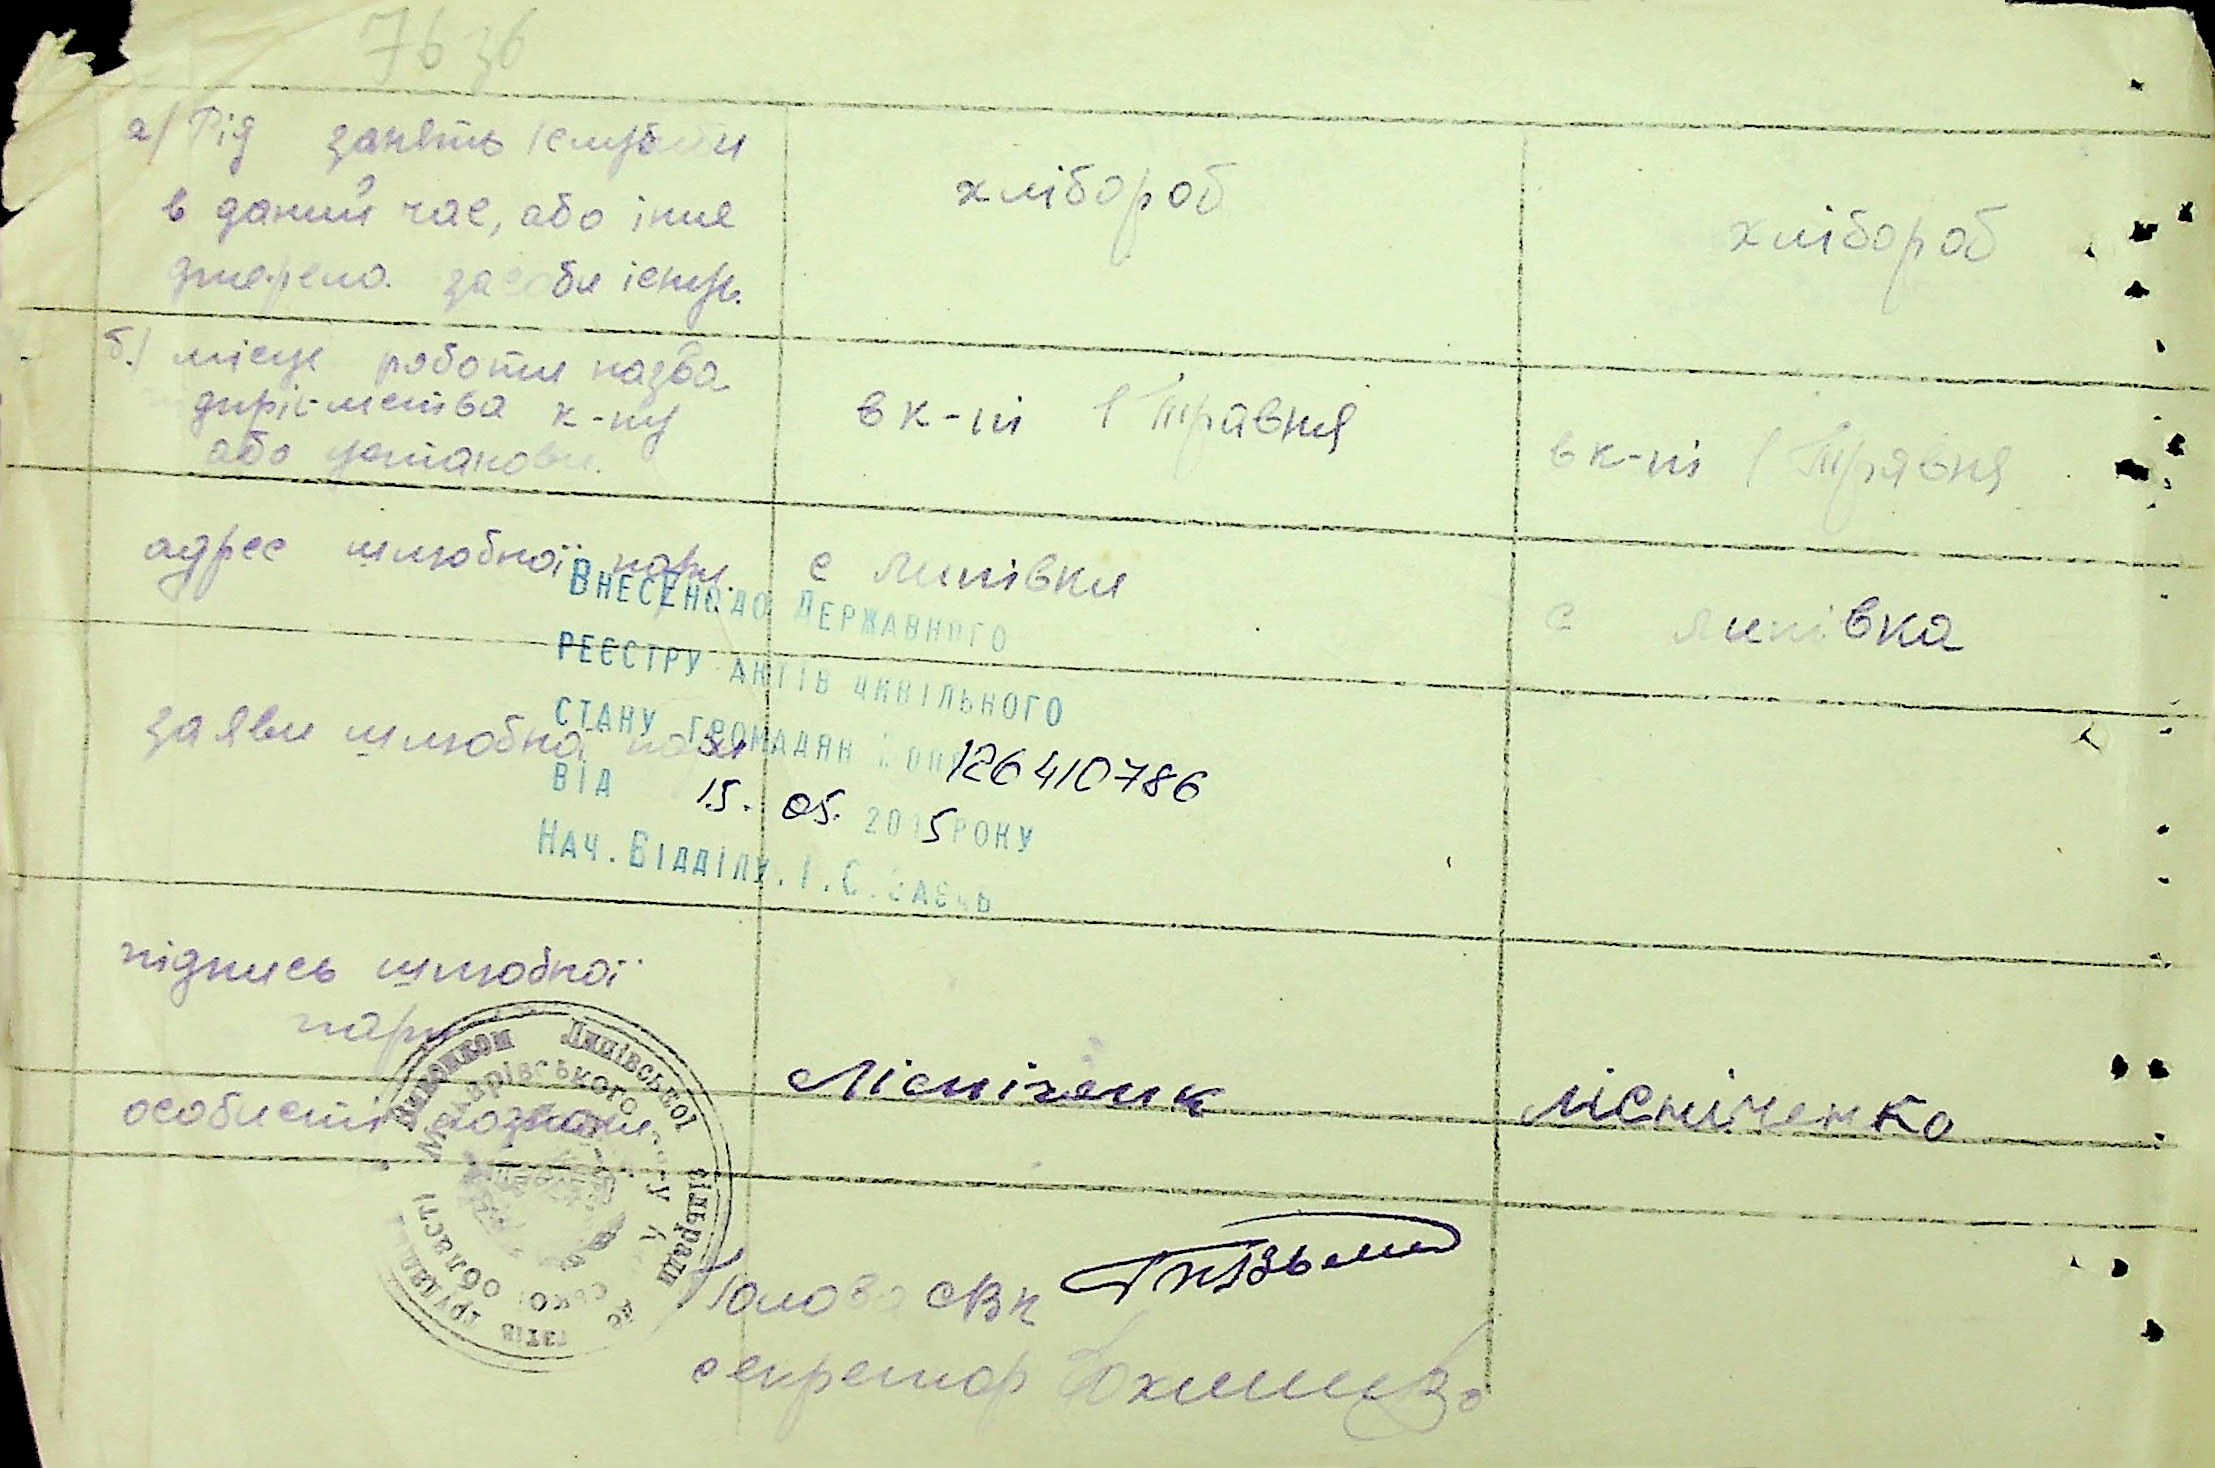 7636
а/ Рід занять /служби
в даний час, або інше
джерело засоби існув.
хлібороб
хлібороб
б./ місце роботи назва
підприємства к-пу
або установи.
в к-пі 1 Травня
в к-пі 1 Травня
адрес шлюбної пари.
с Липівки
с Липівка
заяви шлюбна пари
Внесено до Державного
реєстру актів цивільного
стану громадян
126410786
від 15. 05. 2015 року
Нач. Відділу. І. С. Заєць
підпись шлюбної
пари
Лісніченк
Лісніченко
особисті познаки
Виконком Липівської сільради
Макарівського
області
Голова СВК
секретар